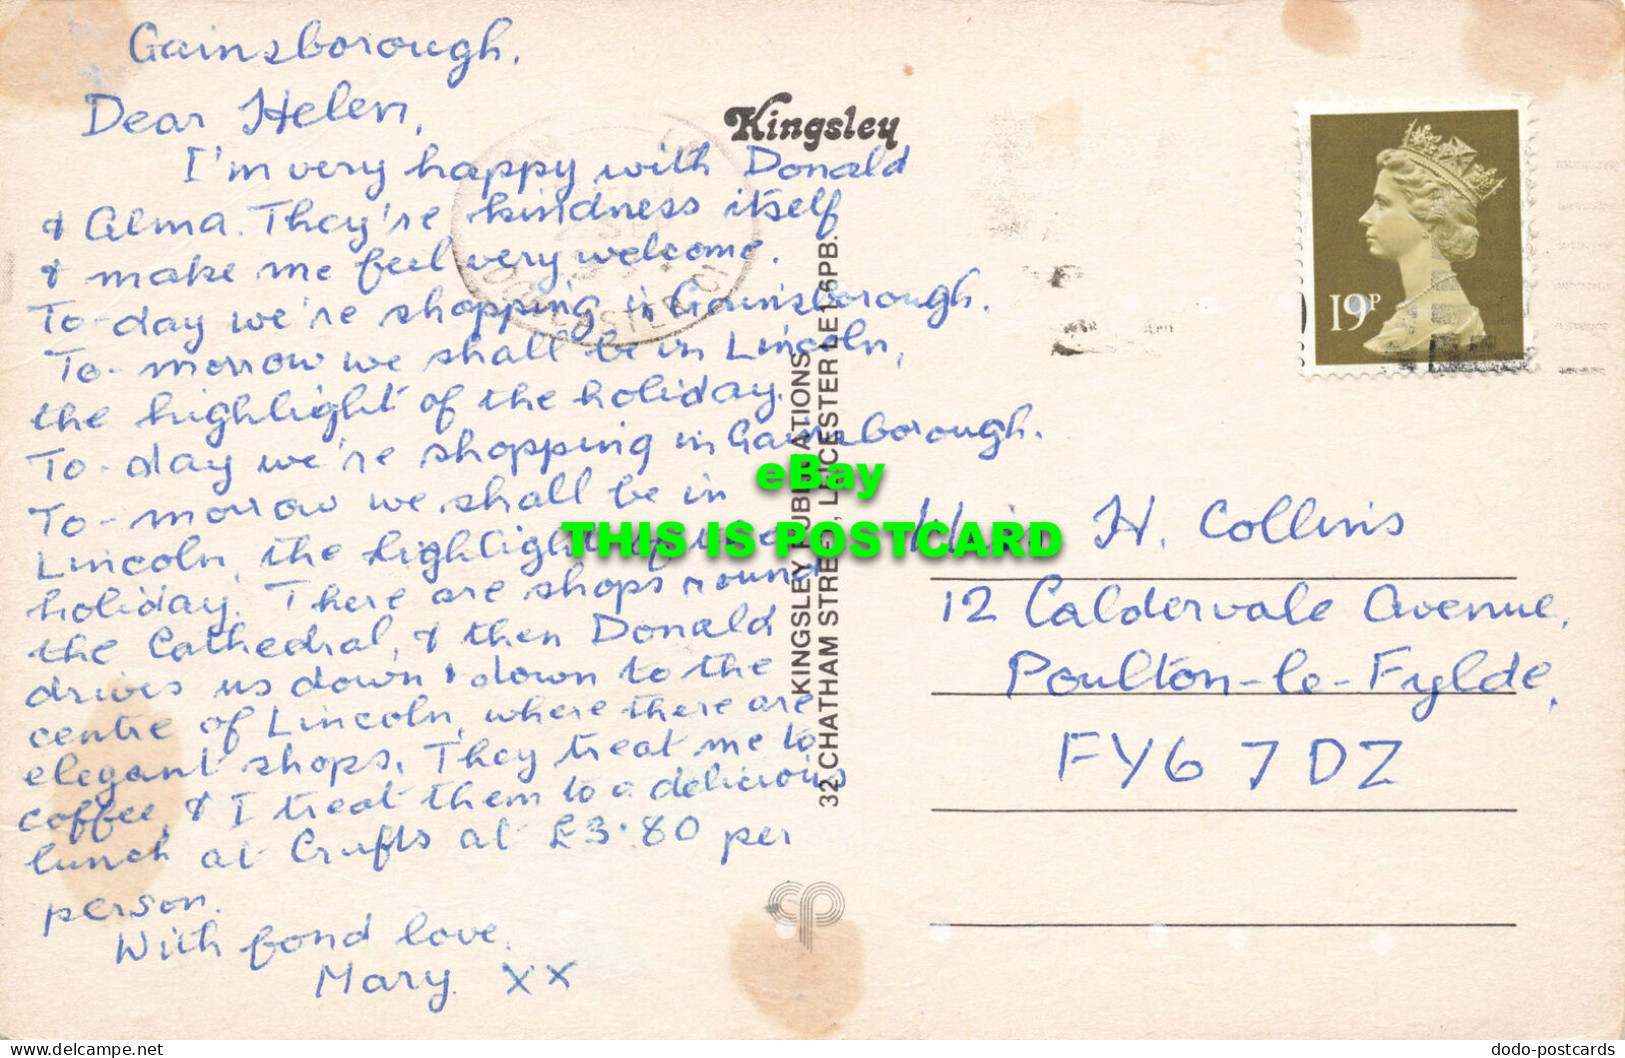 Gainsborough.
Dear Helen,
I'm very happy with Donald
& Alma. They're kindness itself
& make me feel very welcome.
To-day we're shopping in Gainsborough.
To-morrow we shall be in Lincoln,
the highlight of the holiday.
To-day we're shopping in Gainsborough.
To-morrow we shall be in
Lincoln, the highlight of the
holiday. There are shops round
the Cathedral, & then Donald
drives us down & down to the
centre of Lincoln, where there are
elegant shops. They treat me to
coffee, & I treat them to a delicious
lunch at Crufts at £3.80 per
person.
With fond love,
Mary. XX
Kingsley
KINGSLEY PUBLICATIONS
32 CHATHAM STREET, LEICESTER LE1 6PB.
eBay
THIS IS POSTCARD
19P
Miss H. Collins
12 Caldervale Avenue,
Poulton-le-Fylde,
FY6 7DZ
cp
www.delcampe.net
dodo-postcards